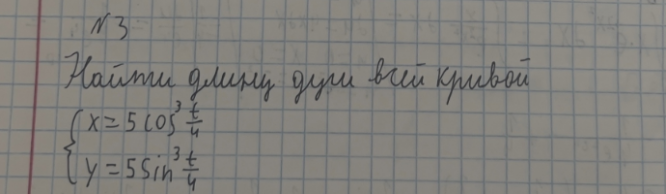 N3
Найти длину дуги всей кривой
{ x = 5 cos³ t/4
{ y = 5 sin³ t/4